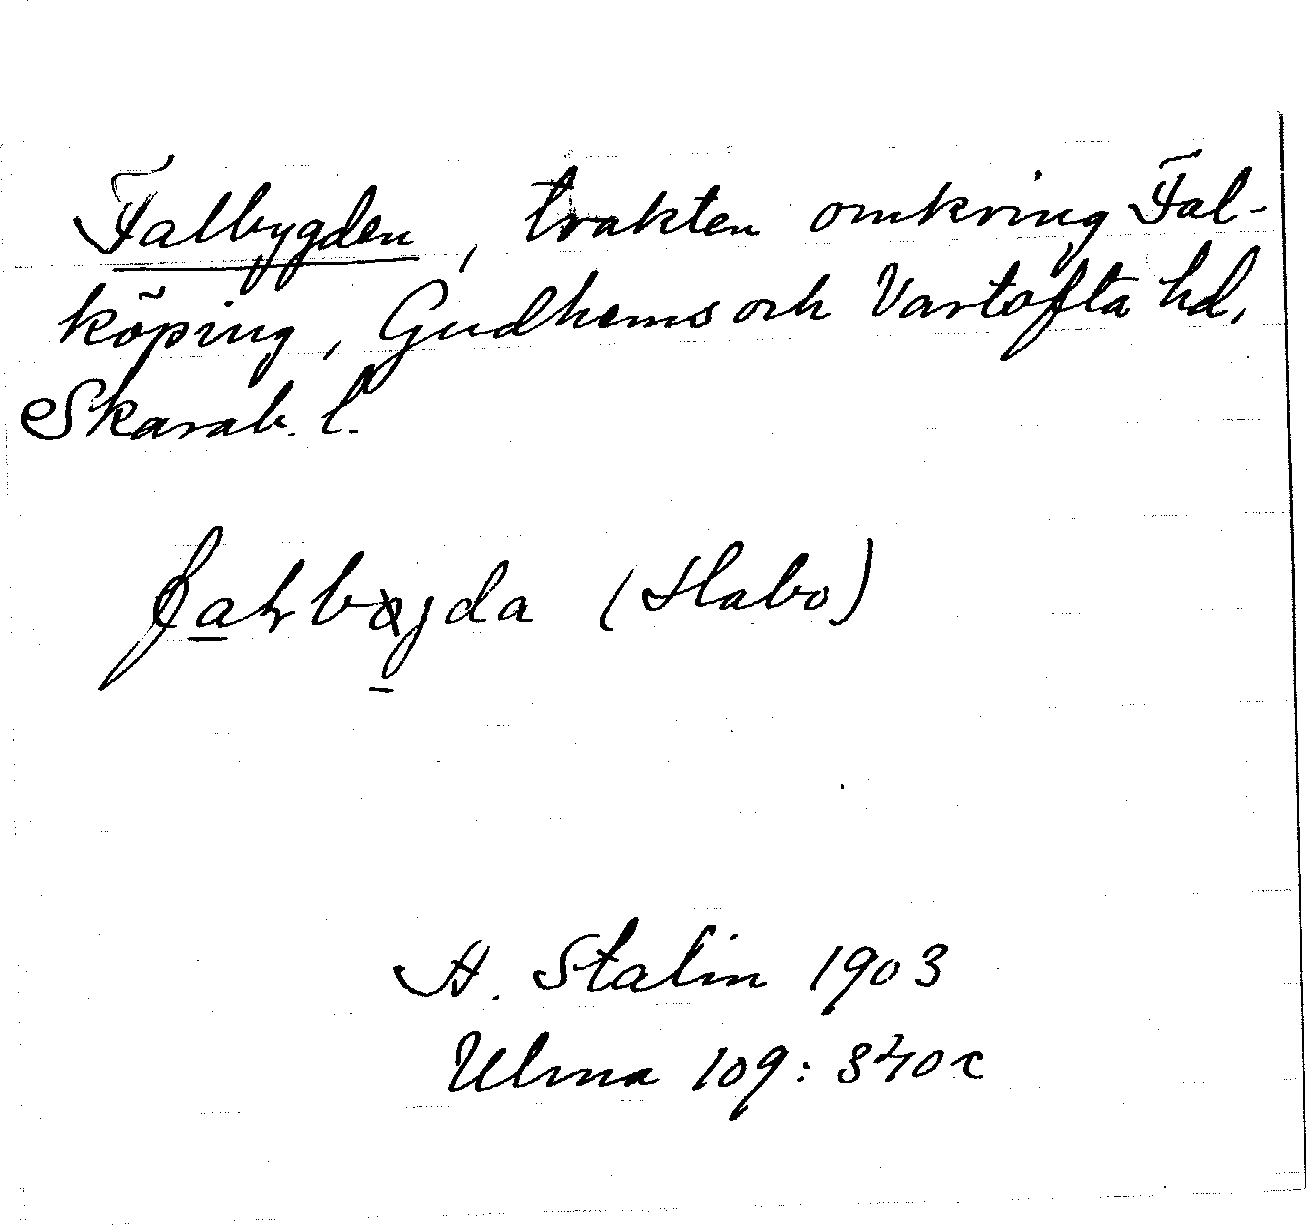 Falbygden, trakten omkring Fal-
köping, Gudhems och Vartofta hd,
Skarab. l.
(Habo)
A. Stalin 1903
Ulma 109: 340c